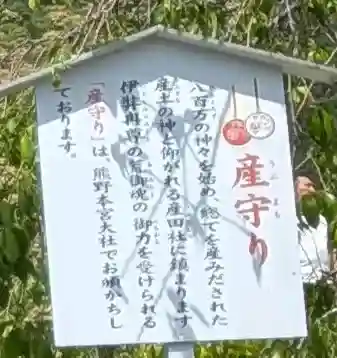 産守り
うぶ まもり
八百万の神々を始め、総てを産みだされた
産土の神と仰がれる産田社に鎮まります
伊弉冉尊の荒御魂の御力を受けられる
「産守り」は、熊野本宮大社でお頒かちし
ております。